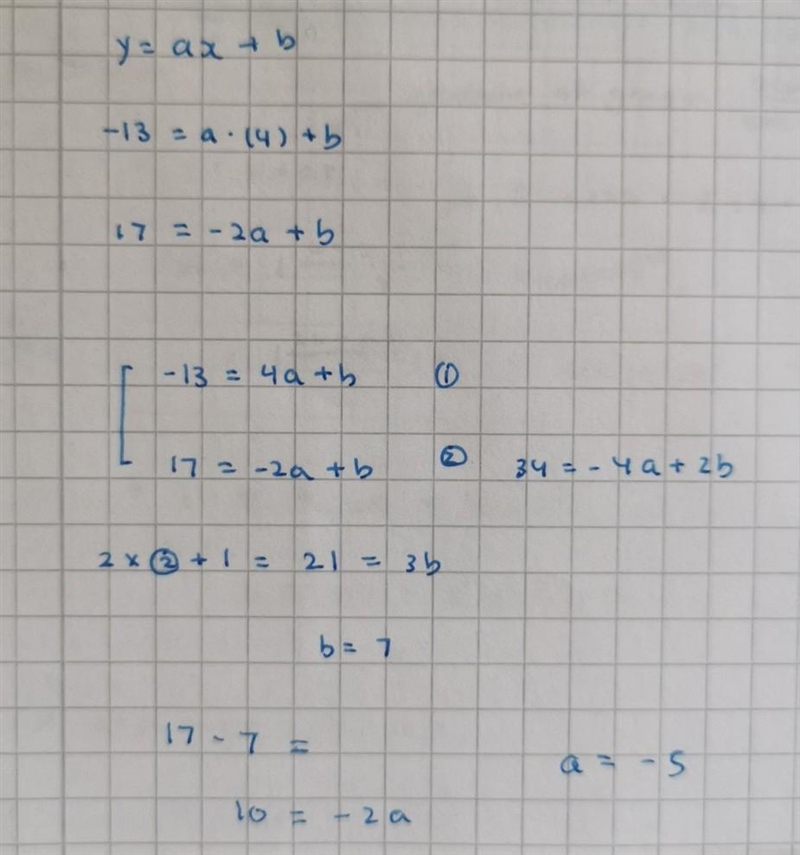 y = ax + b
-13 = a · (4) + b
17 = -2a + b
-13 = 4a + b ①
17 = -2a + b ② 34 = -4a + 2b
2 × ② + 1 = 21 = 3b
b = 7
17 - 7 =
a = -5
10 = -2a